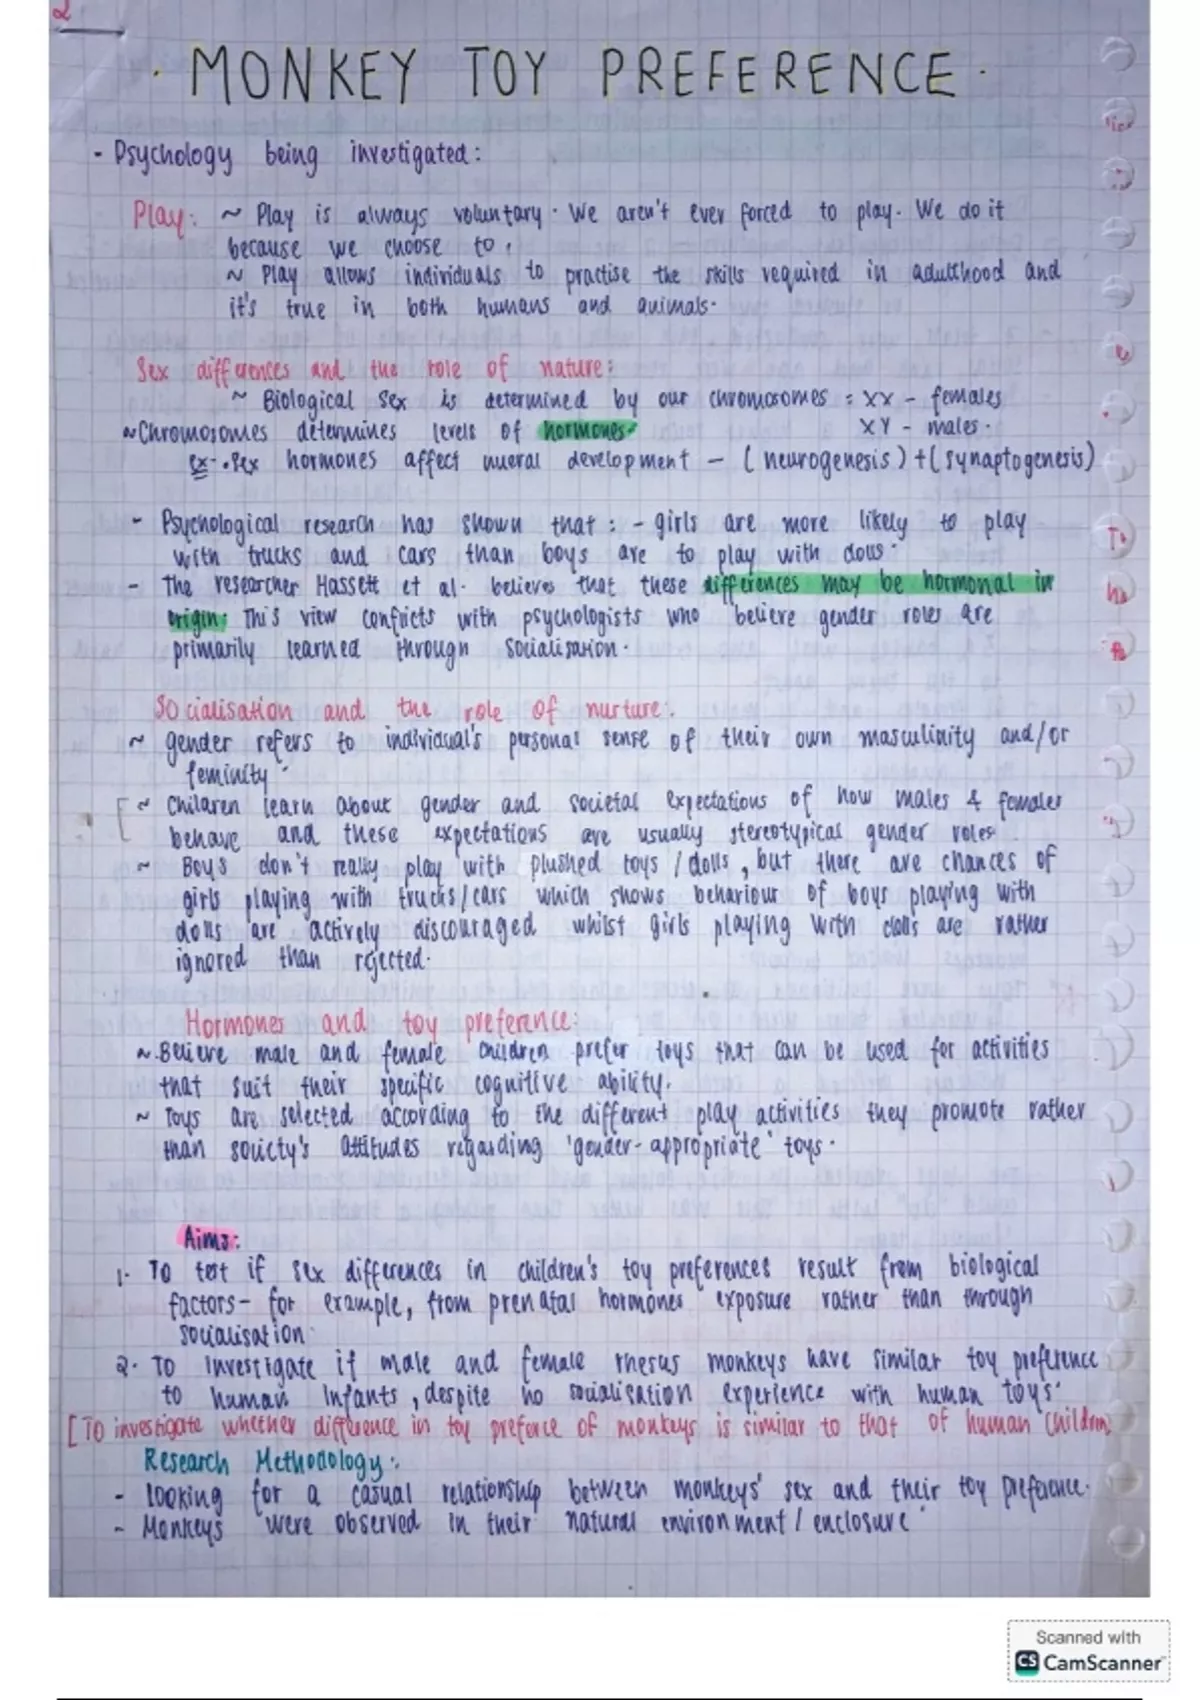 2
· MONKEY TOY PREFERENCE ·
- Psychology being investigated:
Play: ~ Play is always voluntary. We aren't ever forced to play. We do it
because we choose to.
~ Play allows individuals to practise the skills required in adulthood and
it's true in both humans and animals.
Sex differences and the role of nature:
~ Biological sex is determined by our chromosomes = XX - females
~ Chromosomes determines levels of hormones. XY - males.
ex-. sex hormones affect nueral development - (neurogenesis) + (synaptogenesis)
- Psychological research has shown that: - girls are more likely to play
with trucks and cars than boys are to play with dolls.
- The researcher Hassett et al. believes that these differences may be hormonal in
origin. This view conflicts with psychologists who believe gender roles are
primarily learned through socialisation.
Socialisation and the role of nurture:
~ gender refers to individual's personal sense of their own masculinity and/or
feminity.
[ ~ Children learn about gender and societal expectations of how males & females
behave and these expectations are usually stereotypical gender roles.
~ Boys don't really play with plushed toys / dolls, but there are chances of
girls playing with trucks/cars which shows behaviour of boys playing with
dolls are actively discouraged whilst girls playing with dolls are rather
ignored than rejected.
Hormones and toy preference:
~ Believe male and female children prefer toys that can be used for activities
that suit their specific cognitive ability.
~ Toys are selected according to the different play activities they promote rather
than society's attitudes regarding 'gender-appropriate' toys.
Aims:
1. To test if sex differences in children's toy preferences result from biological
factors - for example, from prenatal hormones exposure rather than through
socialisation.
2. To investigate if male and female rhesus monkeys have similar toy preference
to human infants, despite no socialisation experience with human toys.
[To investigate whether difference in toy preferece of monkeys is similar to that of human children]
Research Methodology:
- looking for a casual relationship between monkeys' sex and their toy preference.
- Monkeys were observed in their natural environment / enclosure
Scanned with
CS CamScanner